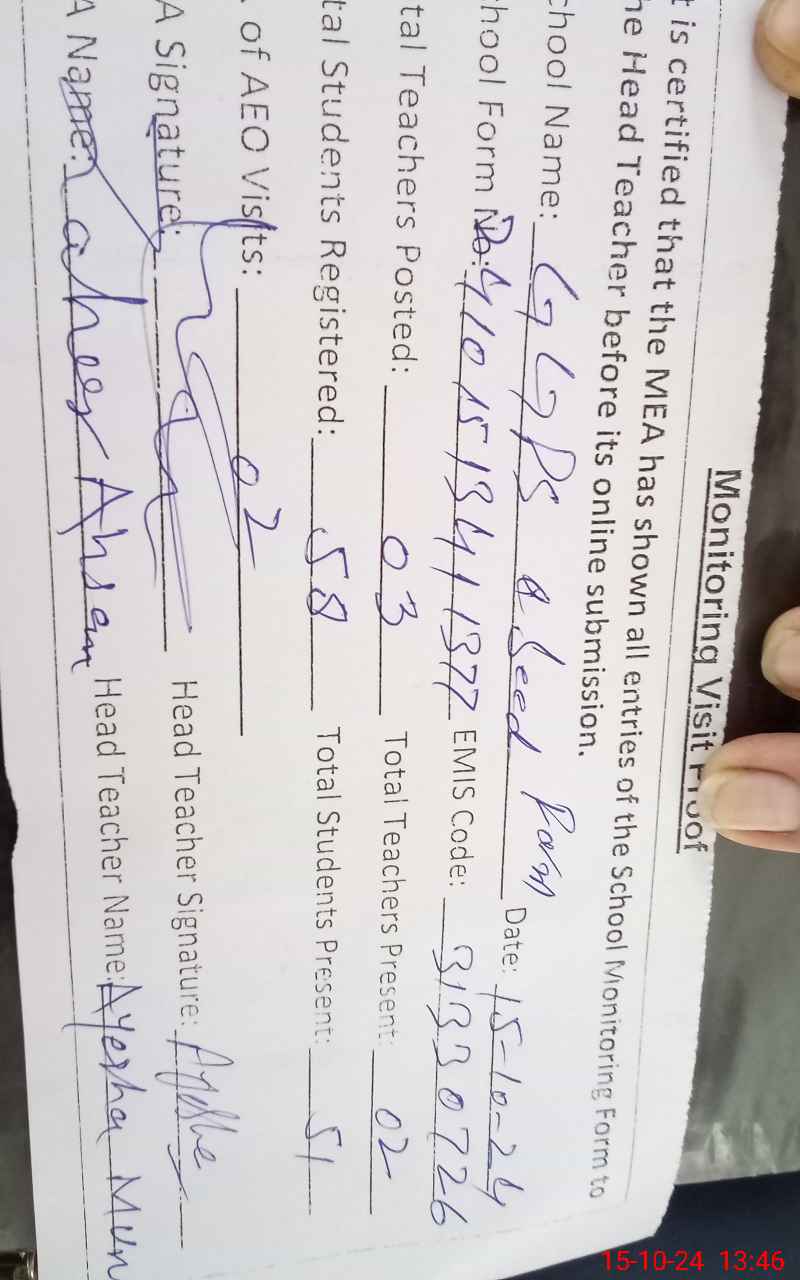 Monitoring Visit Proof
t is certified that the MEA has shown all entries of the School Monitoring Form to
he Head Teacher before its online submission.
chool Name: GGPS a Seed Farm Date: 15-10-24
hool Form No: 4101513411377 EMIS Code: 31330726
tal Teachers Posted: 03 Total Teachers Present: 02
tal Students Registered: 58 Total Students Present: 51
of AEO Visits: 02
A Signature: Head Teacher Signature: Ayesha
A Name: Zaheer Ahsan Head Teacher Name: Ayesha Mun
15-10-24 13:46